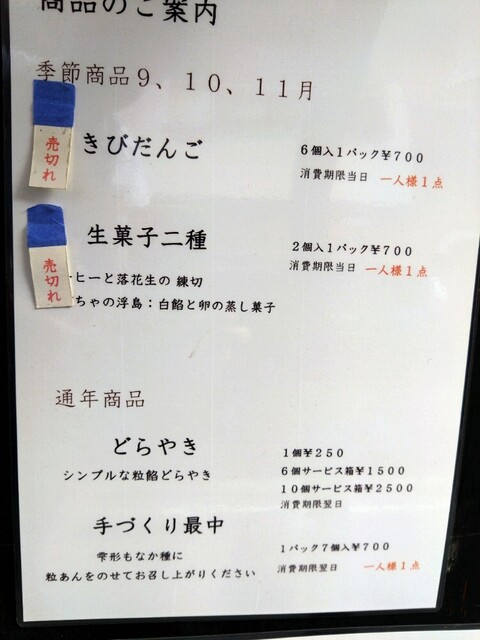 商品のご案内
季節商品9、10、11月
売切れ
きびだんご
6個入1パック¥700
消費期限当日 一人様1点
売切れ
生菓子二種
2個入1パック¥700
消費期限当日 一人様1点
ーヒーと落花生の 練切
ちゃの浮島：白餡と卵の蒸し菓子
通年商品
どらやき
1個¥250
シンプルな粒餡どらやき
6個サービス箱¥1500
10個サービス箱¥2500
消費期限翌日
手づくり最中
1パック7個入¥700
雫形もなか種に
粒あんをのせてお召し上がりください
消費期限翌日 一人様1点